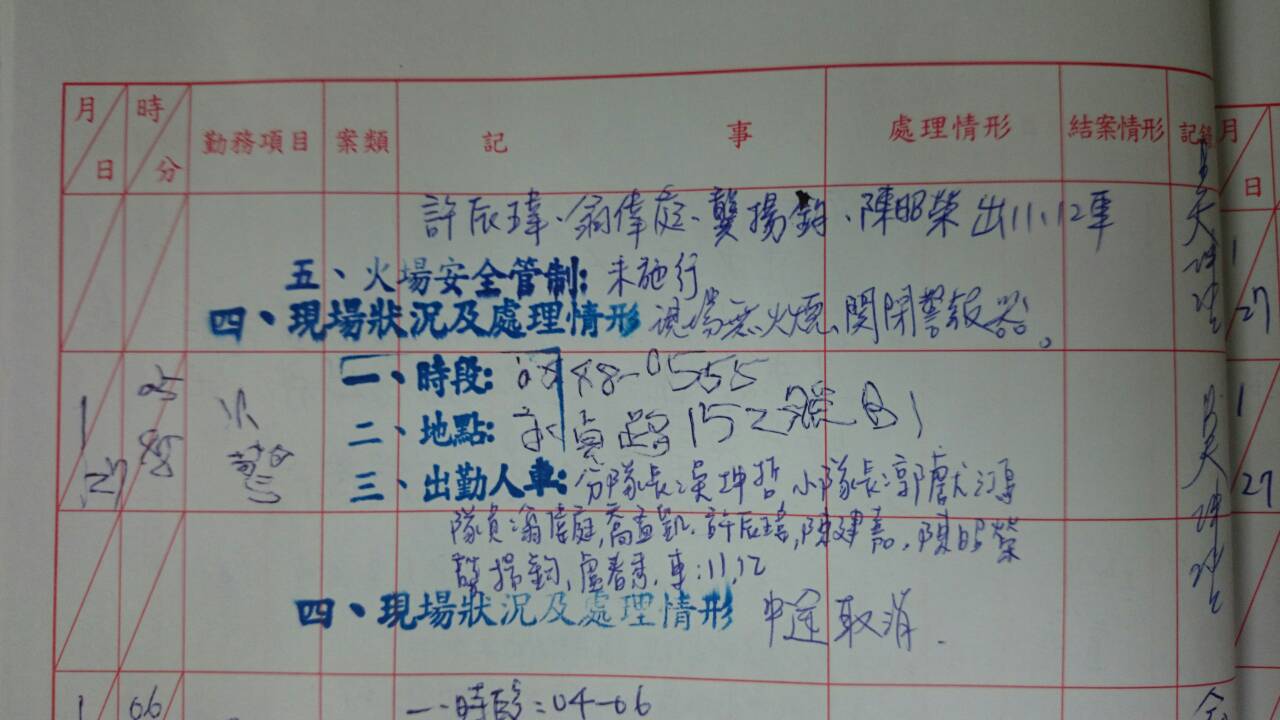 月 日 時 分 勤務項目 案類 記 事 處理情形 結案情形 月 日
許辰瑋、翁偉庭、龔揚鈞、陳昭榮出11、12車
五、火場安全管制:未施行
四、現場狀況及處理情形 現場無火煙、關閉警報器。
1 27
一、時段: 0548-0555
1 27 05 48 火警
二、地點: 152號B1
三、出勤人車:分隊長:吳坤哲,小隊長:郭獻鴻
1 27
隊員:翁偉庭,喬孟凱,許辰瑋,陳建嘉,陳昭榮
龔揚鈞,盧春秀,車:11,12
四、現場狀況及處理情形 中途取消.
1 06 一、時段:04-06